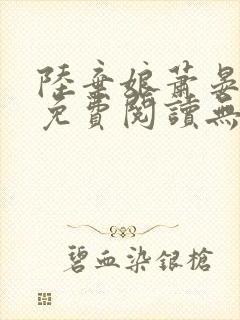 陸棄娘蕭晏
免費閱讀無
碧血染銀槍